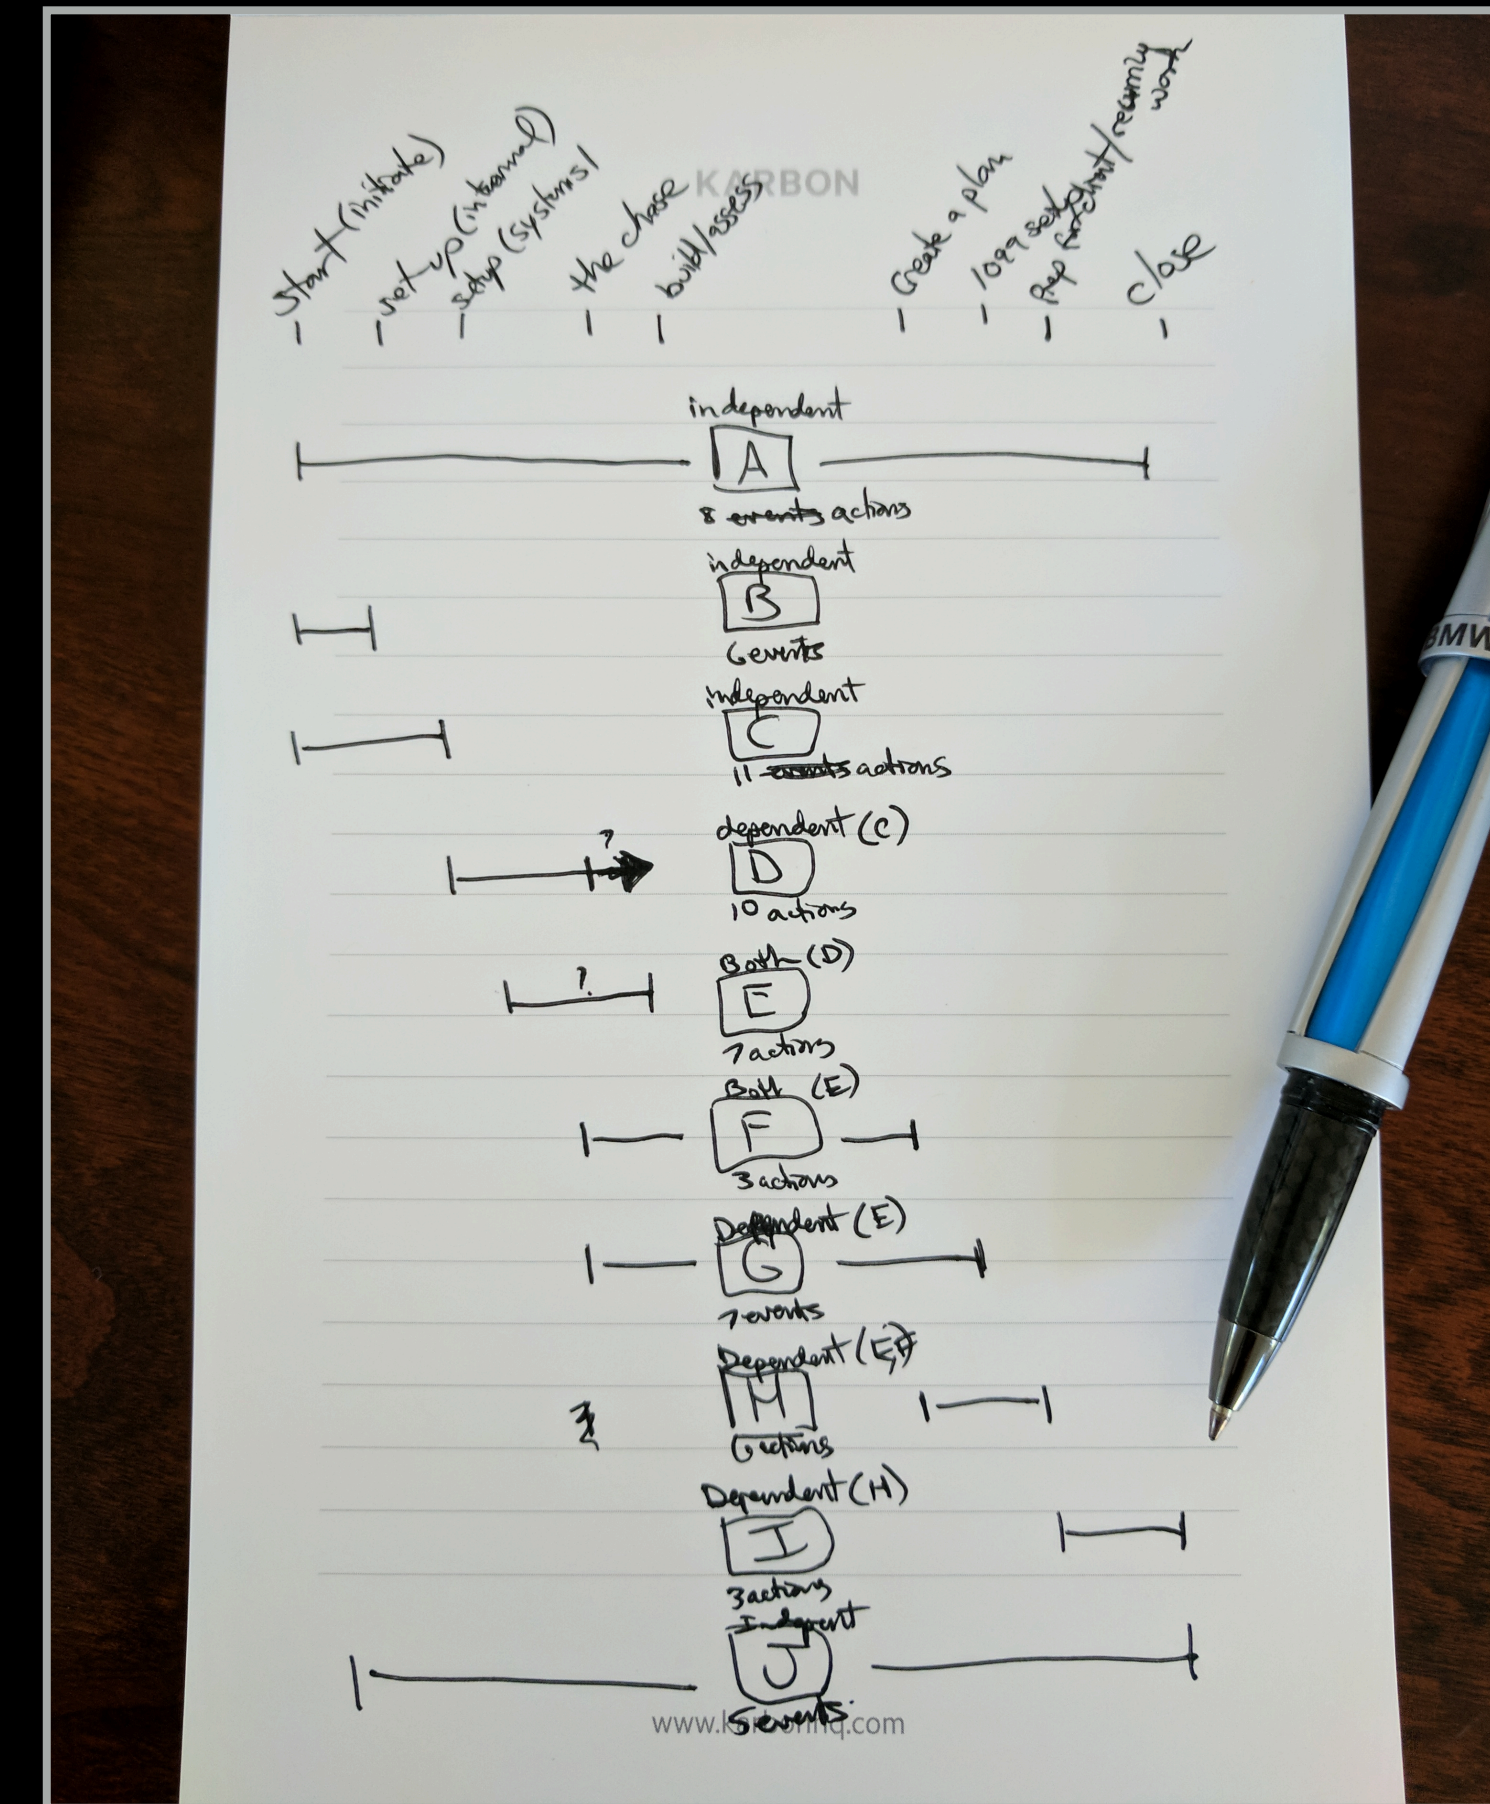 KARBON
start (initiate)
set-up (internal)
setup (systems)
the chase
build/assess
Create a plan
1099 setup
Prep for client/recurring
work
close
independent
A
8 events actions
independent
B
6 events
independent
C
11 events actions
dependent (C)
?
D
10 actions
Both (D)
?
E
7 actions
Both (E)
F
3 actions
Dependent (E)
G
7 events
Dependent (E,F)
H
6 actions
Dependent (H)
I
3 actions
J
5 events
www.karbonhq.com
BMW